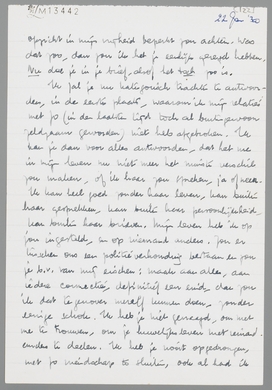 M13442
22 Jan '80
opzicht in mijn vrijheid beperkt zou achten. Was
dat zoo, dan zou ik het je eerlijk gezegd hebben.
Nu doe je in je brief, alsof het toch zoo is.
Ik zal je nu kategorisch trachten te antwoor-
den, in de eerste plaats, waarom ik mijn relaties
met Jo (in de laatste tijd toch al buitengewoon
zeldzaam geworden) niet heb afgebroken. Ik
kan je dan voor alles antwoorden, dat het me
in mijn leven nu niet meer het minste verschil
zou maken, of ik haar zou spreken, ja of neen.
Ik kan heel goed zonder haar leven, kan buiten
haar gesprekken, kan buiten haar persoonlijkheid,
kan buiten haar brieven. Mijn leven heb ik op
jou ingesteld, en op niemand anders. Zou er
tusschen ons een politieverhouding bestaan en zou
je b.v. van mij eischen: maak aan alles, aan
iedere connectie, definitief een eind, dan zou
ik dat tegenover mezelf kunnen doen, zonder
eenige schade. Ik heb je niet gevraagd, om met
me te trouwen, om je huwelijksleven met iemand
anders te deelen. Ik heb je nooit opgedrongen,
met Jo vriendschap te sluiten, ook al had ik